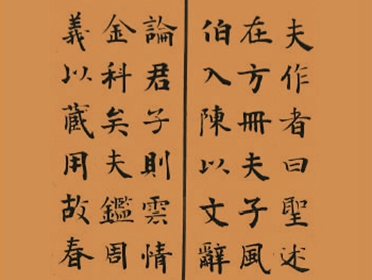 夫作者曰聖述
在方冊夫子風
伯入陳以文辭
論君子則雲情
金科矣夫鑑周
義以藏用故春